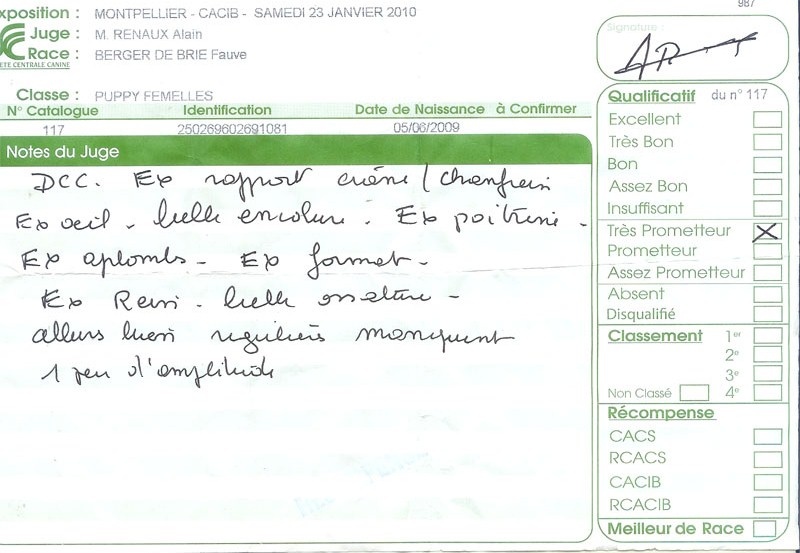 xposition : MONTPELLIER - CACIB - SAMEDI 23 JANVIER 2010
Juge : M. RENAUX Alain
Race : BERGER DE BRIE Fauve
ETE CENTRALE CANINE
Classe : PUPPY FEMELLES
N° Catalogue Identification Date de Naissance à Confirmer
117 250269602691081 05/06/2009
Notes du Juge
DCC. Ex rapport crâne / chanfrein
Ex oeil - belle encolure. Ex poitrine -
Ex aplombs - Ex format -
Ex Rein - belle ossature -
allures bien régulières manquent
1 peu d'amplitude
987
Signature :
Qualificatif du n° 117
Excellent
Très Bon
Bon
Assez Bon
Insuffisant
Très Prometteur X
Prometteur
Assez Prometteur
Absent
Disqualifié
Classement 1er
2e
3e
Non Classé 4e
Récompense
CACS
RCACS
CACIB
RCACIB
Meilleur de Race